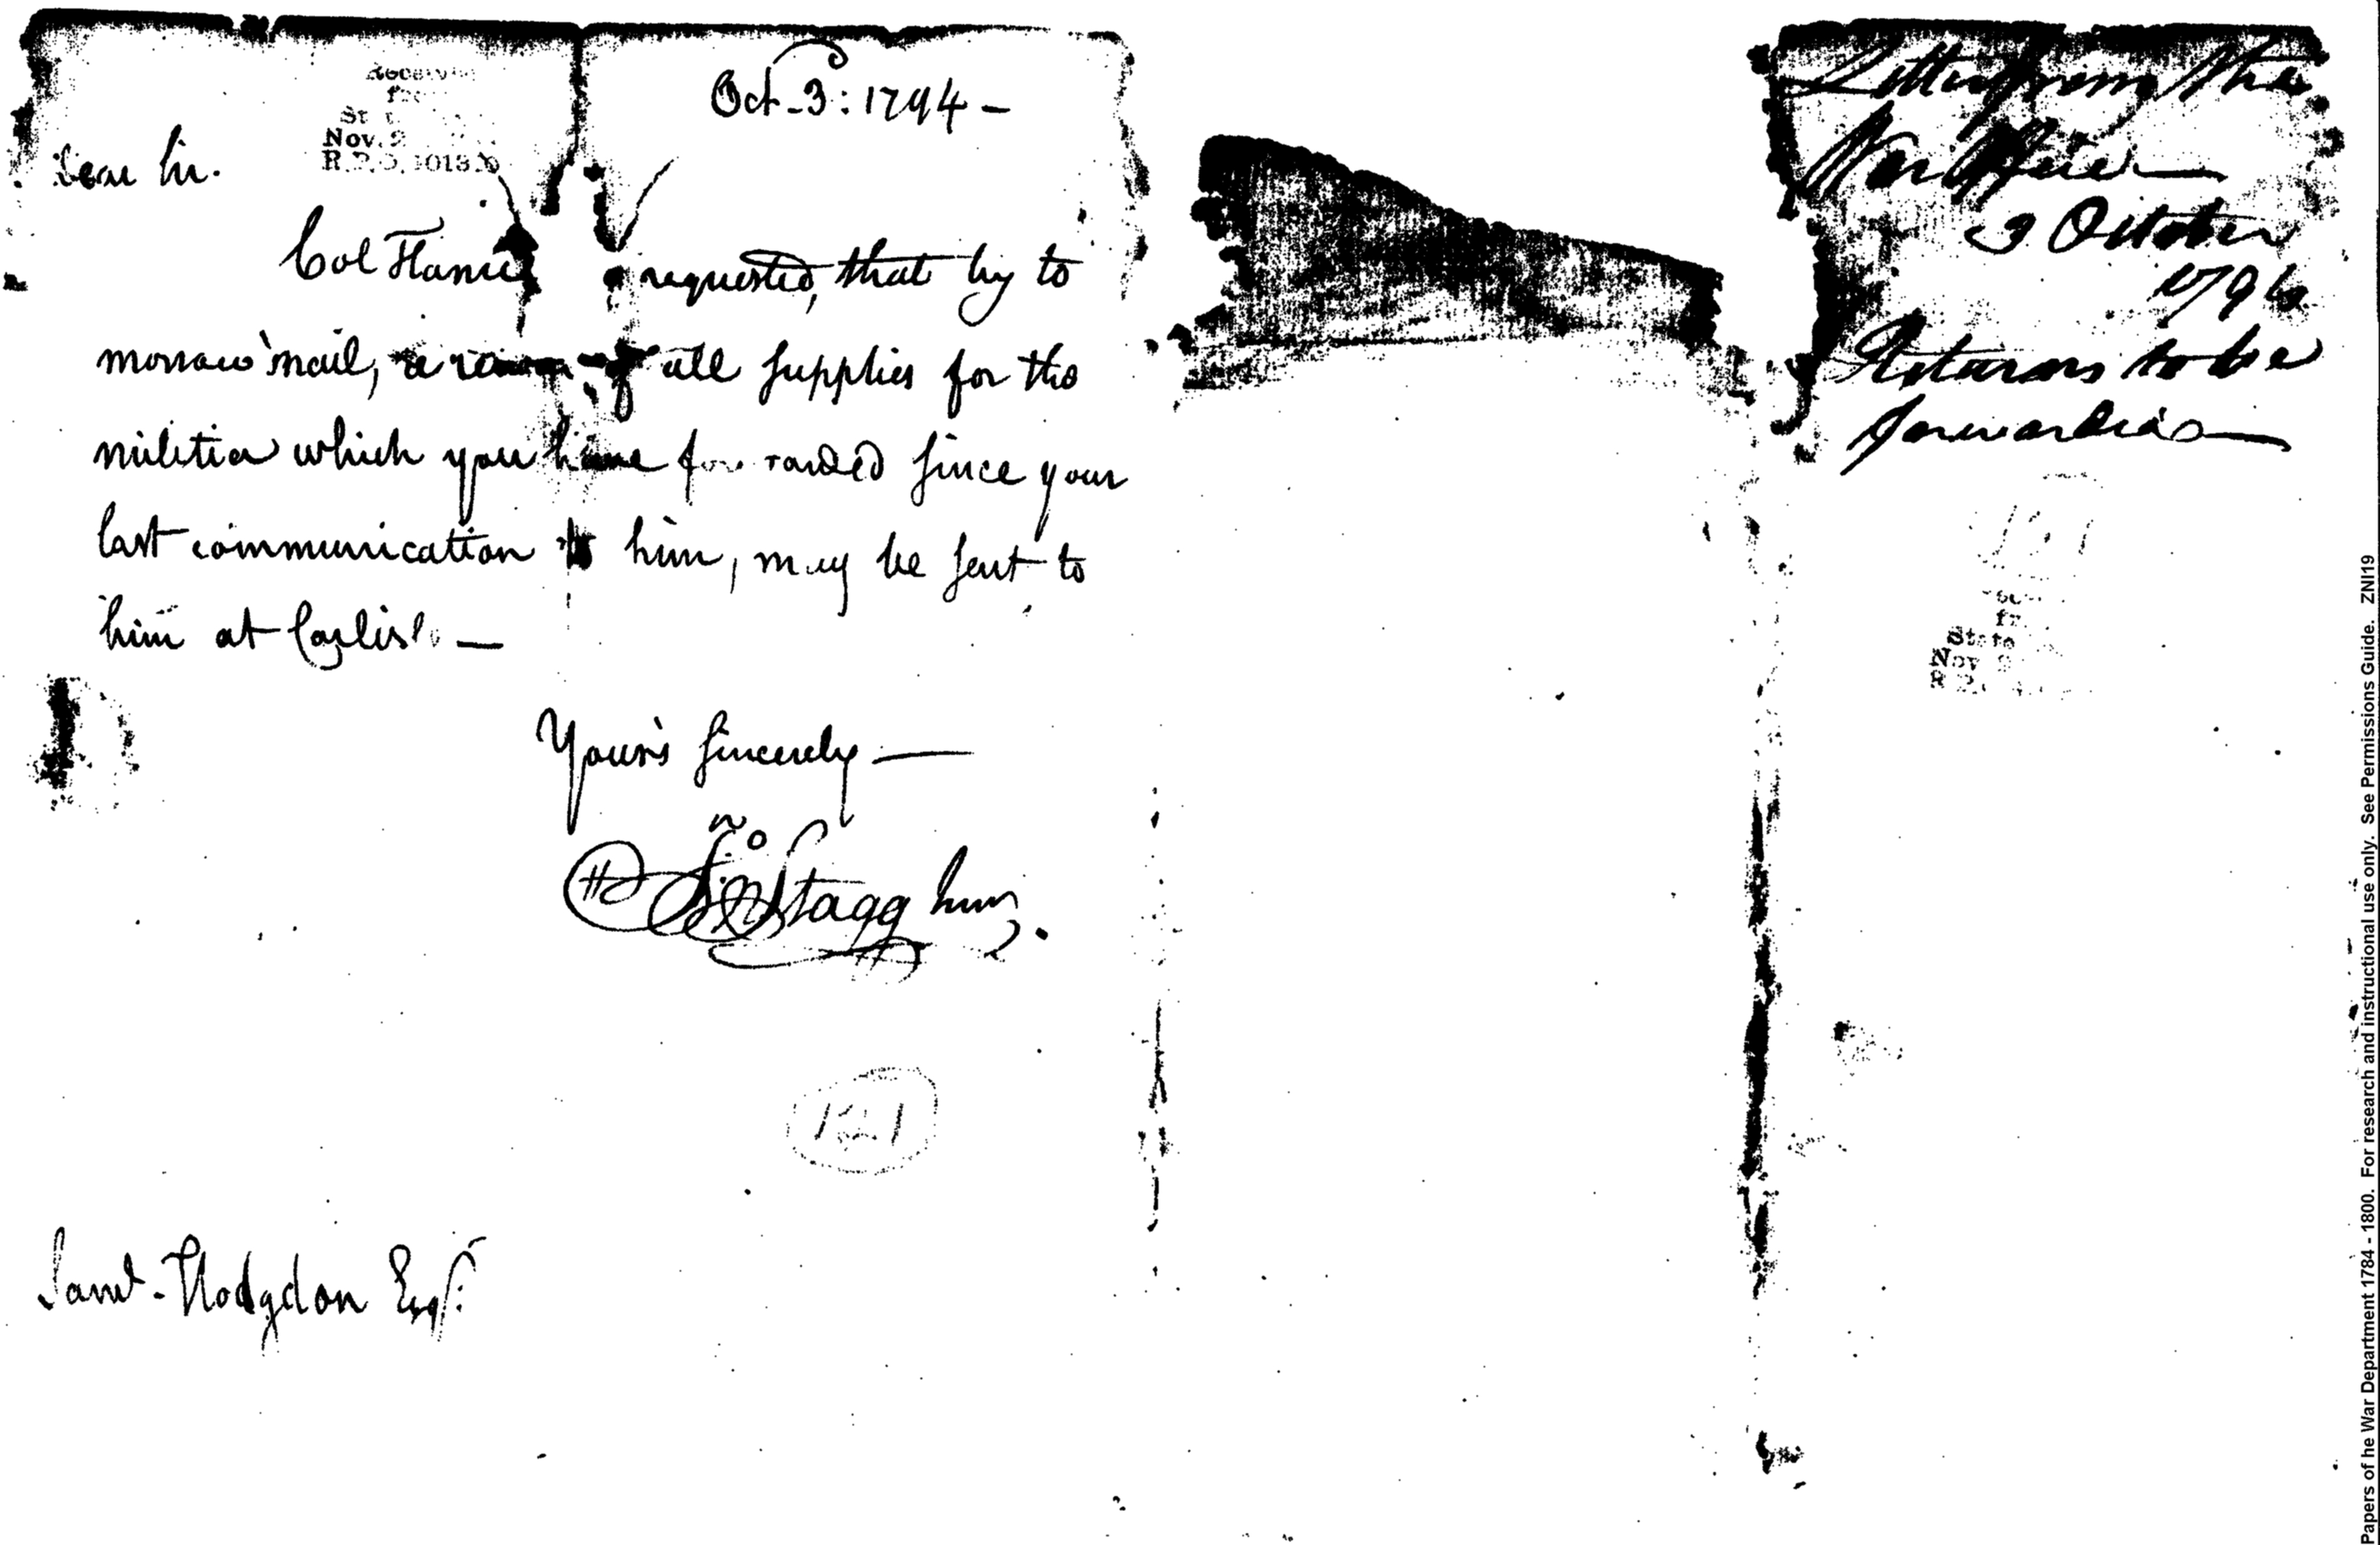 Oct. 3: 1794 –
Nov. 2
Dear Sir.
Col requested, that by to
morrow's mail, a of all supplies for the
militia which you have forwarded since your
last communication to him, may be sent to
him at Carlisle —
Your's sincerely —
Jno Stagg Junr.
121
Saml. Hodgdon Esqr.
Letter from the
War Office
3 October
1794
Returns to be
forwarded
State
Nov
Papers of he War Department 1784 - 1800. For research and instructional use only. See Permissions Guide. ZNI19